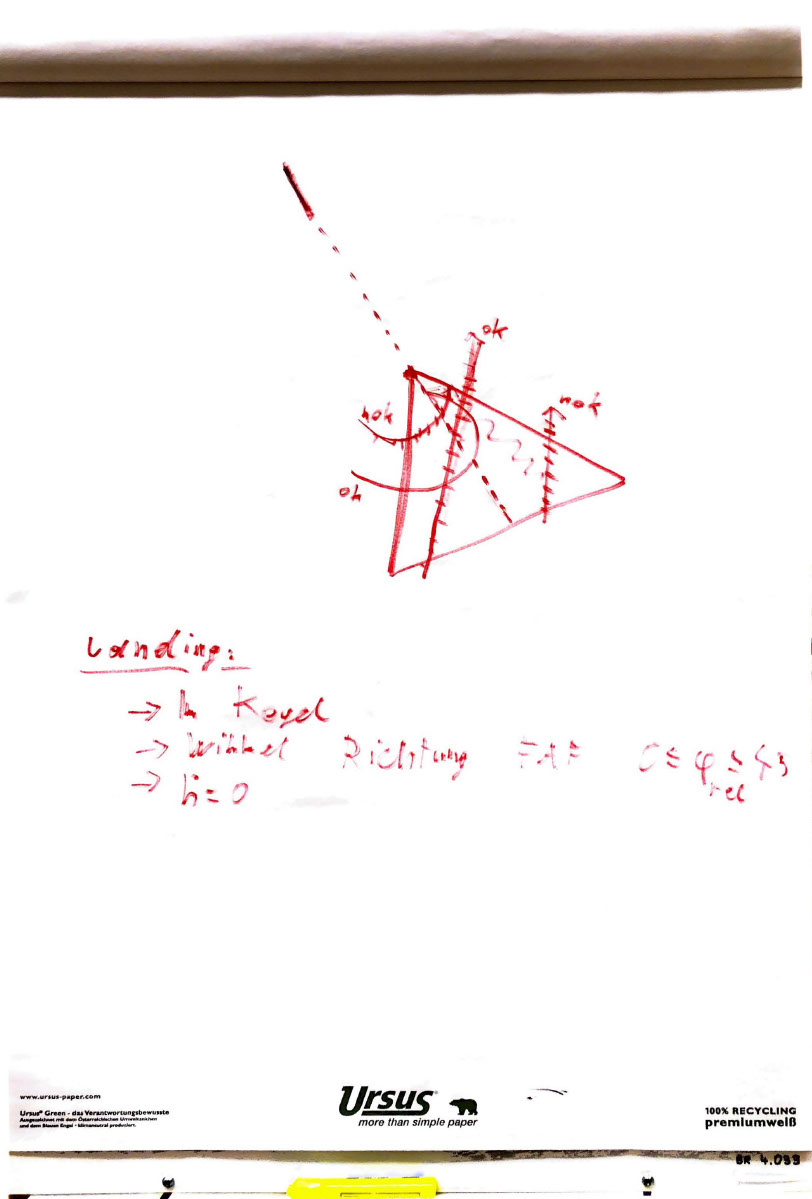 ok
nok
nok
ok
Landing:
→ Im Kegel
→ Winkel Richtung FAF 0 ≤ φ rel ≤ 45
→ ḣ = 0
www.ursus-paper.com
Ursus® Green - das Verantwortungsbewusste
Ausgezeichnet mit dem Österreichischen Umweltzeichen
und dem Blauen Engel - klimaneutral produziert.
Ursus
more than simple paper
100% RECYCLING
premiumweiß
BR 4.099